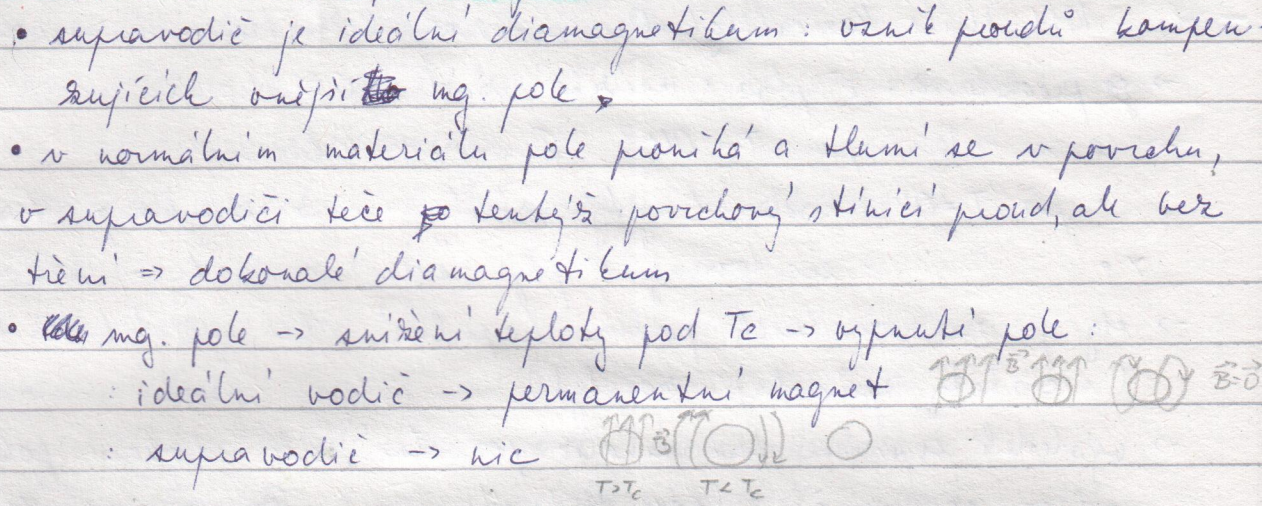 • supravodič je ideální diamagnetikum : vznik proudů kompen-
zujících vnější mg. pole
• v normálním materiálu pole proniká a tlumí se v povrchu,
v supravodiči teče tentýž povrchový stínící proud, ale bez
tření => dokonalé diamagnetikum
• mg. pole -> snížení teploty pod Tc -> vypnutí pole :
: ideální vodič -> permanentní magnet B B=0
: supravodič -> nic B
T>Tc T<Tc